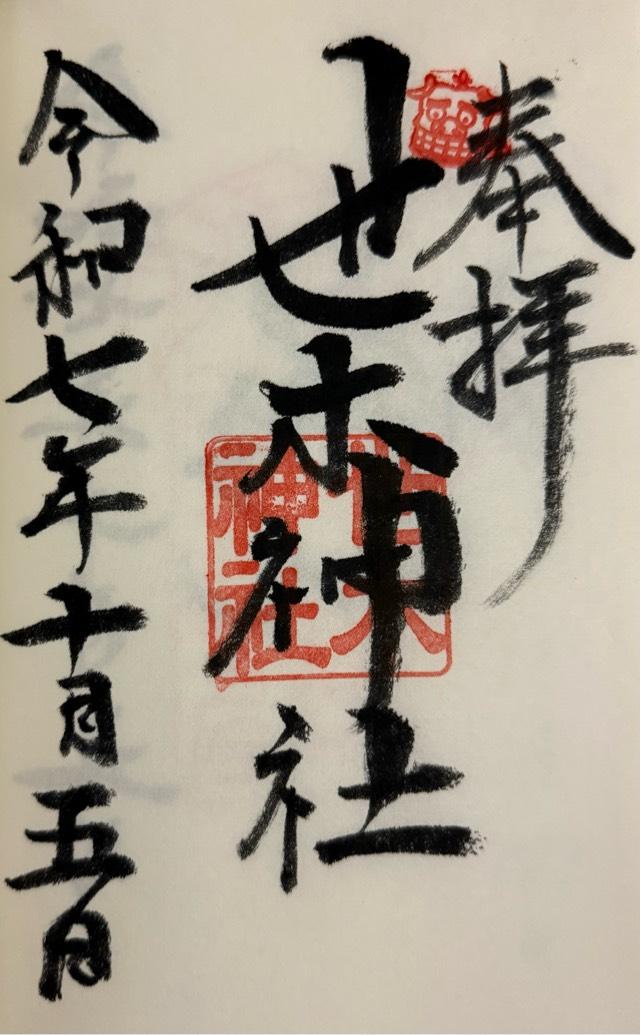 奉拝
世木神社
世木
神社
令和七年十月五日